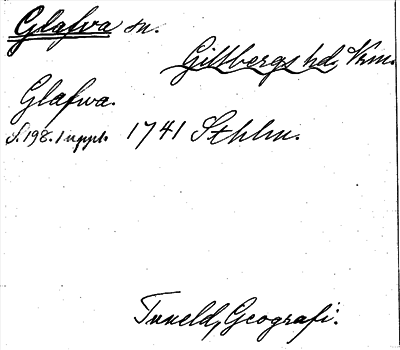 Glafva sn.
Gillbergs hd, Vrm.
Glafwa.
S. 198. 1 uppl. 1741 Sthlm.
Tuneld, Geografi.